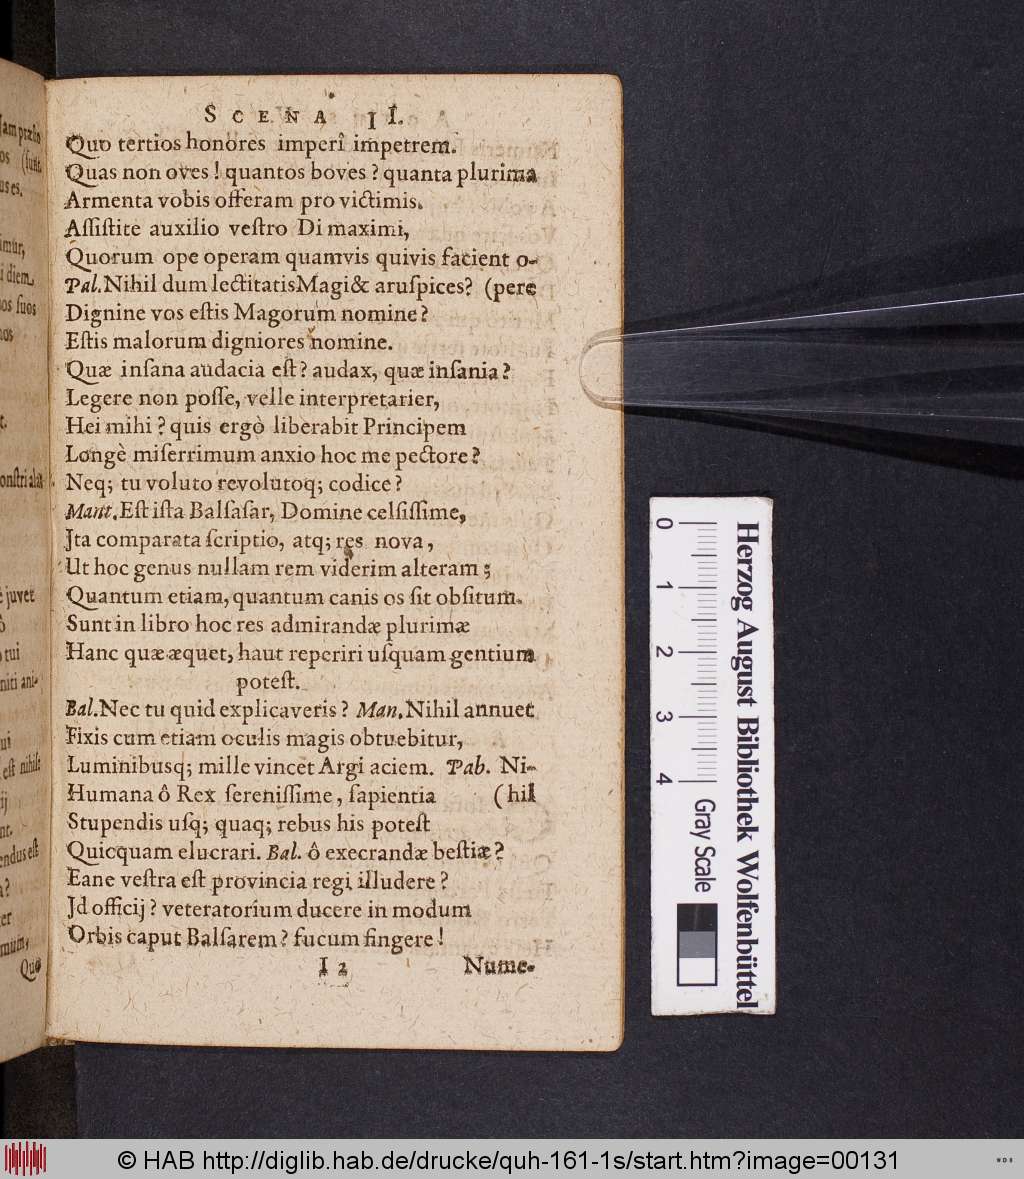 Jam prælio
os (sunt.
us es.
imur,
i diem.
os suos
nos
t.
onstri alat
è juvet
ô
tui
niti ani-
ui
est nihils
ij
nt.
endus est
a?
er
mum,
Quô
SCENA II.
Quo tertios honores imperî impetrem.
Quas non oves! quantos boves? quanta plurima
Armenta vobis offeram pro victimis.
Assistite auxilio vestro Di maximi,
Quorum ope operam quamvis quivis facient o-
Pal. Nihil dum lectitatis Magi & aruspices? (pere
Dignine vos estis Magorum nomine?
Estis malorum digniores nomine.
Quæ insana audacia est? audax, quæ insania?
Legere non posse, velle interpretarier,
Hei mihi? quis ergò liberabit Principem
Longè miserrimum anxio hoc me pectore?
Neq; tu voluto revolutoq; codice?
Mant. Est ista Balsasar, Domine celsissime,
Jta comparata scriptio, atq; res nova,
Ut hoc genus nullam rem viderim alteram;
Quantum etiam, quantum canis os sit obsitum.
Sunt in libro hoc res admirandæ plurimæ
Hanc quæ æquet, haut reperiri usquam gentium
potest.
Bal. Nec tu quid explicaveris? Man. Nihil annuet
Fixis cum etiam oculis magis obtuebitur,
Luminibusq; mille vincet Argi aciem. Pab. Ni-
Humana ô Rex serenissime, sapientia (hil
Stupendis usq; quaq; rebus his potest
Quicquam elucrari. Bal. ô execrandæ bestiæ?
Eane vestra est provincia regi illudere?
Jd officij? veteratorium ducere in modum
Orbis caput Balsarem? fucum fingere!
I 2 Nume-
0 1 2 3 4
Gray Scale
Herzog August Bibliothek Wolfenbüttel
© HAB http://diglib.hab.de/drucke/quh-161-1s/start.htm?image=00131